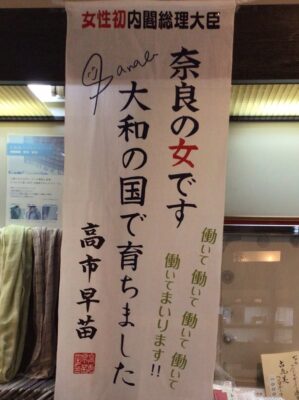 女性初内閣総理大臣
奈良の女です
大和の国で育ちました
Sanae
働いて 働いて 働いて 働いて
働いてまいります!!
高市早苗